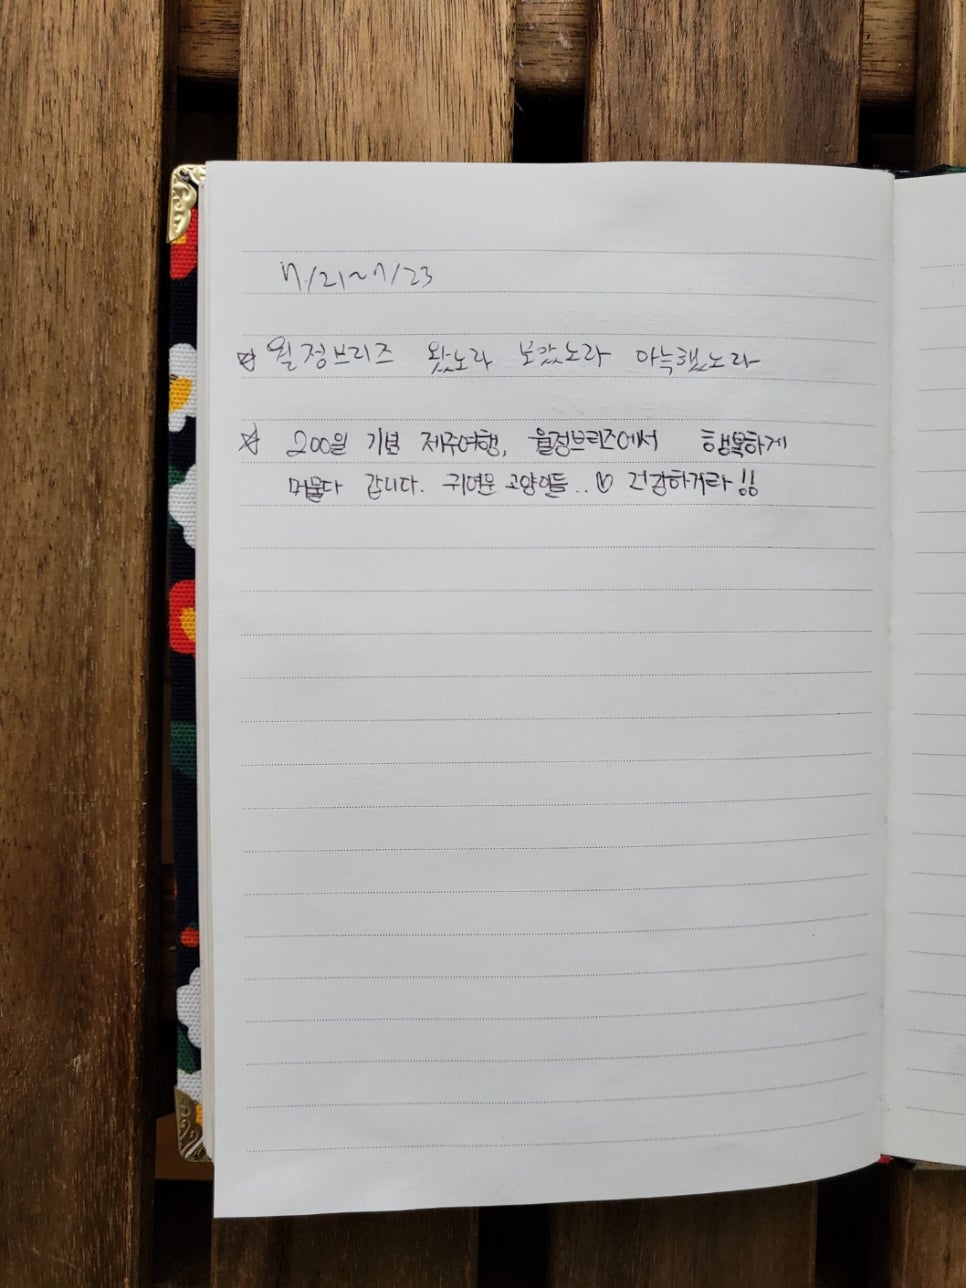 7/21~7/23
☆ 월정브리즈 왔노라 보았노라 아늑했노라
☆ 200일 기념 제주여행, 월정브리즈에서 행복하게
머물다 갑니다. 귀여운 고양이들..♡ 건강하거라!!